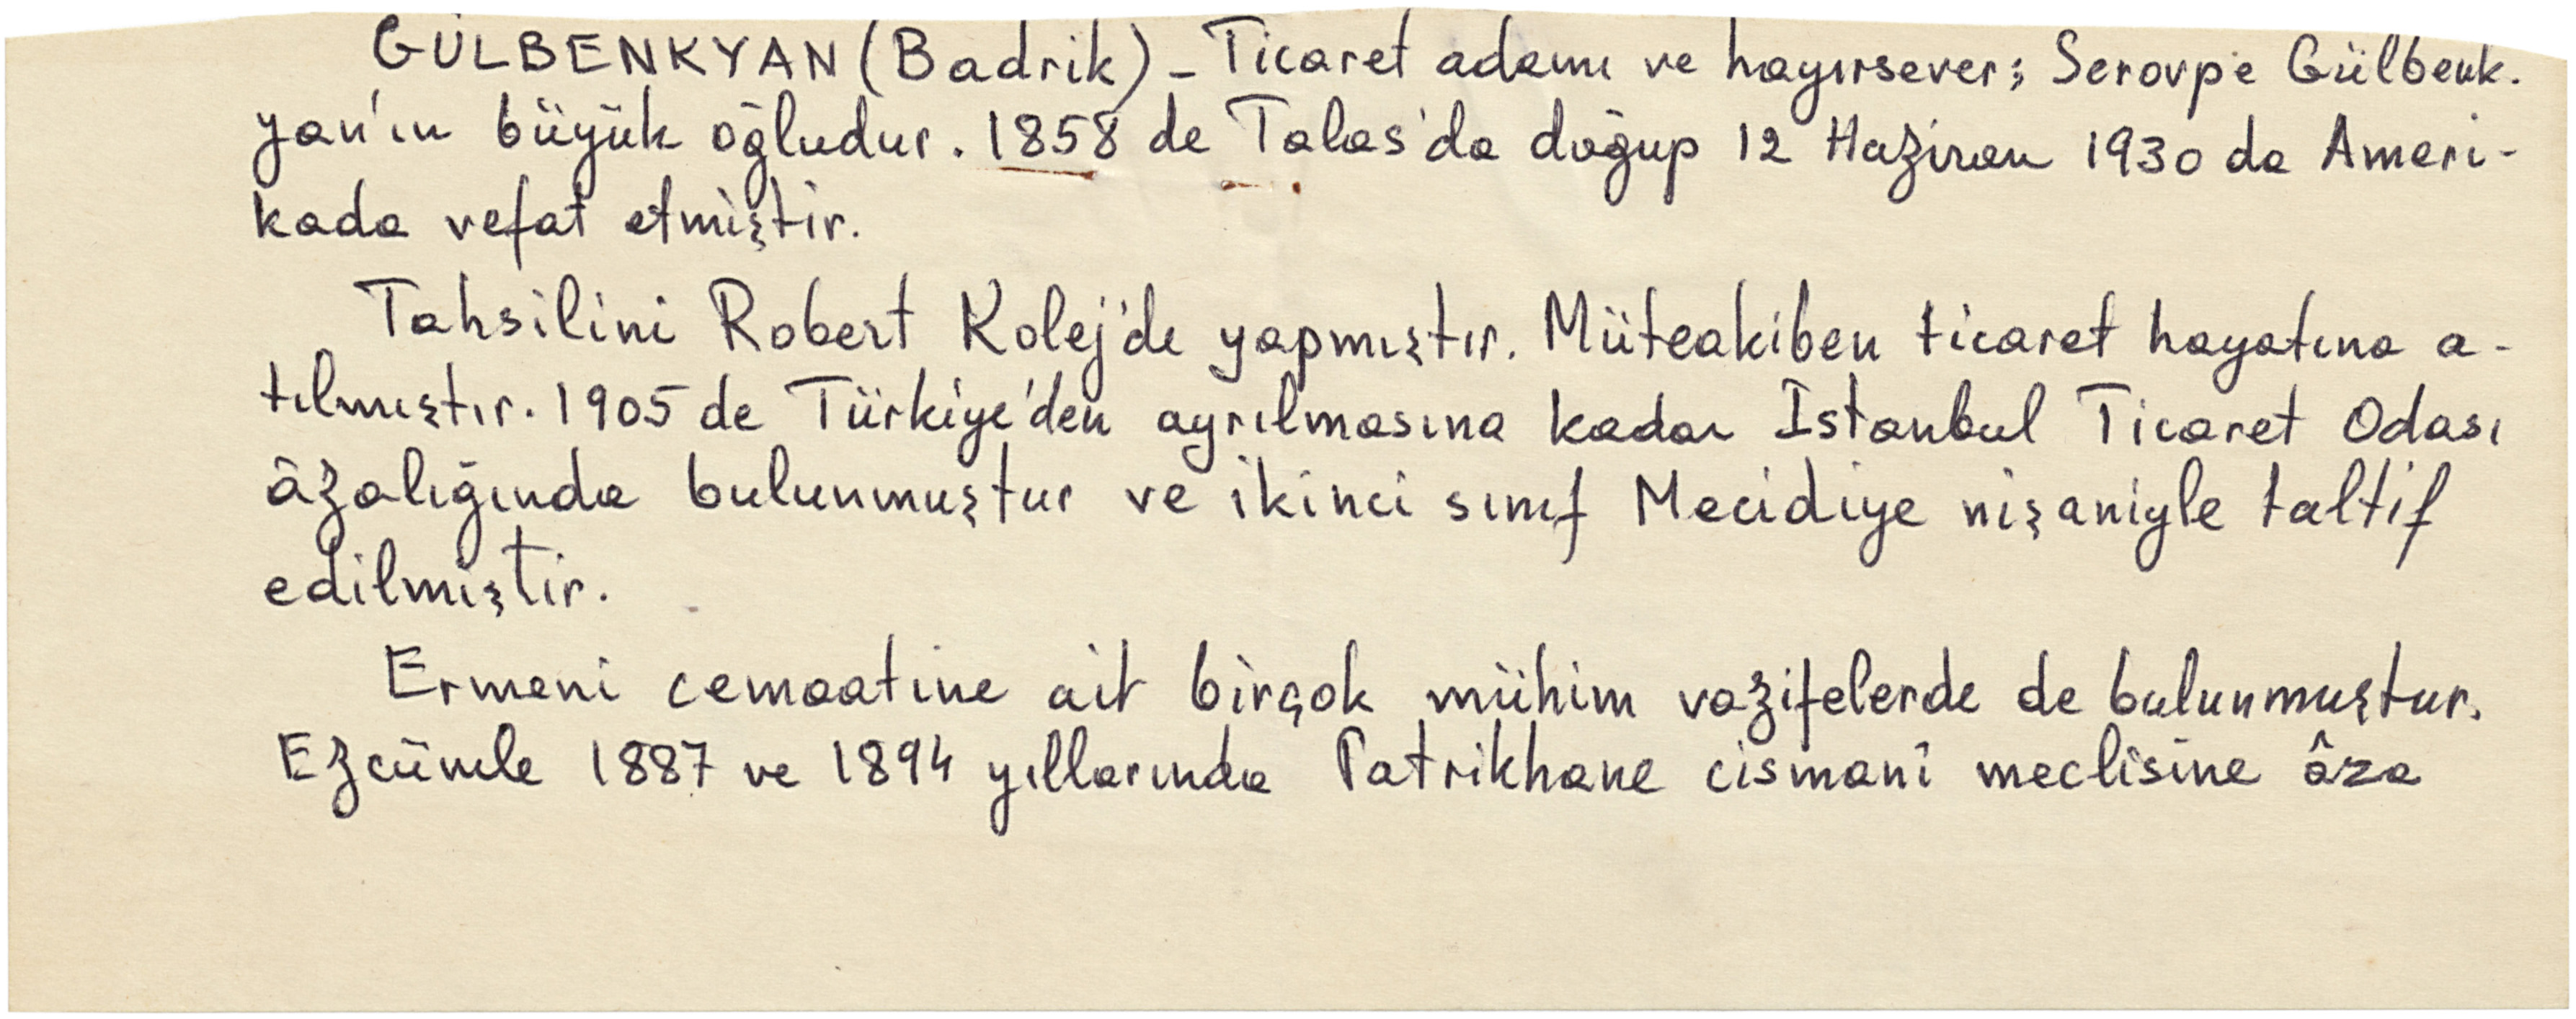 GÜLBENKYAN (Badrik) - Ticaret adamı ve hayırsever; Serovpe Gülbenk.
yan'ın büyük oğludur. 1858 de Talas'da doğup 12 Haziran 1930 da Ameri-
kada vefat etmiştir.
Tahsilini Robert Kolej'de yapmıştır. Müteakiben ticaret hayatına a-
tılmıştır. 1905 de Türkiye'den ayrılmasına kadar İstanbul Ticaret Odası
âzalığında bulunmuştur ve ikinci sınıf Mecidiye nişaniyle taltif
edilmiştir.
Ermeni cemaatine ait birçok mühim vazifelerde de bulunmuştur.
Ezcümle 1887 ve 1894 yıllarında Patrikhane cismanî meclisine âza